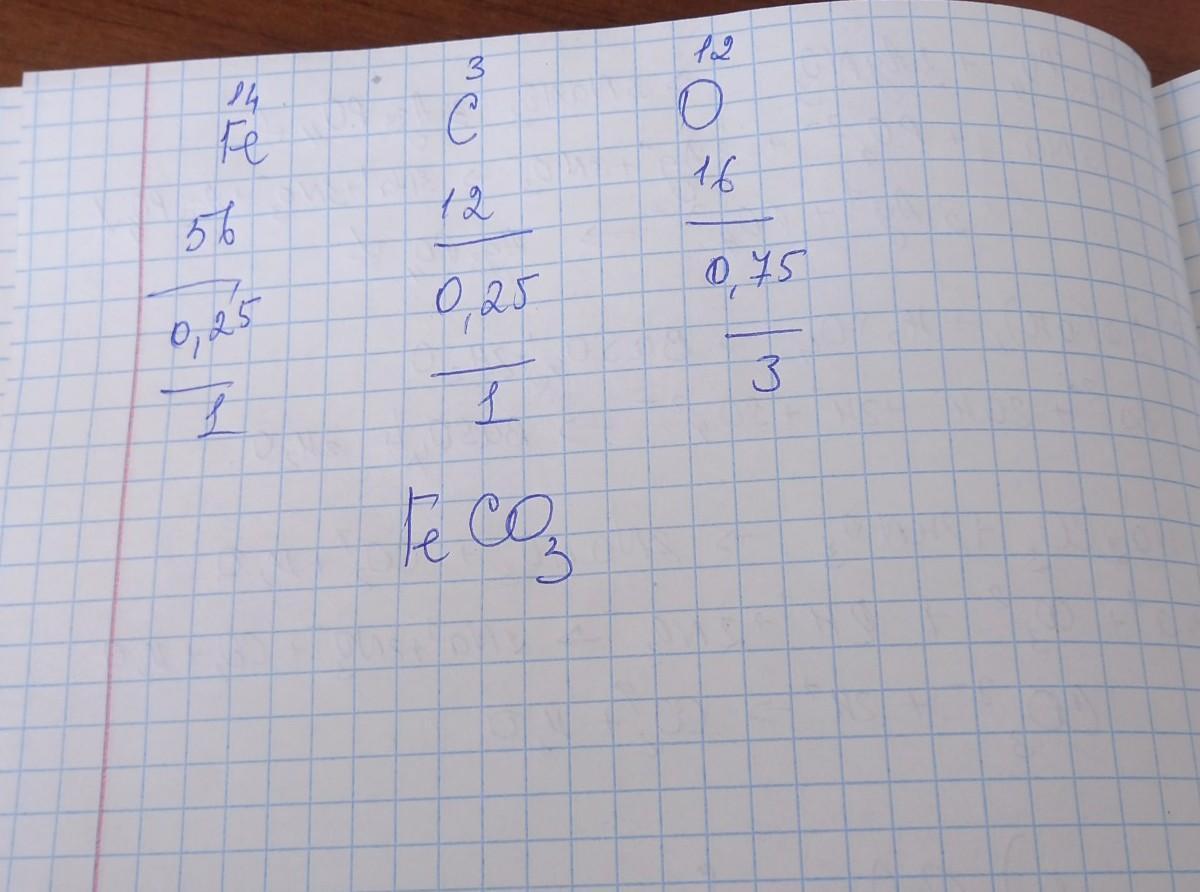 14 3 12
Fe C O
56 12 16
0,25 0,25 0,75
1 1 3
FeCO₃